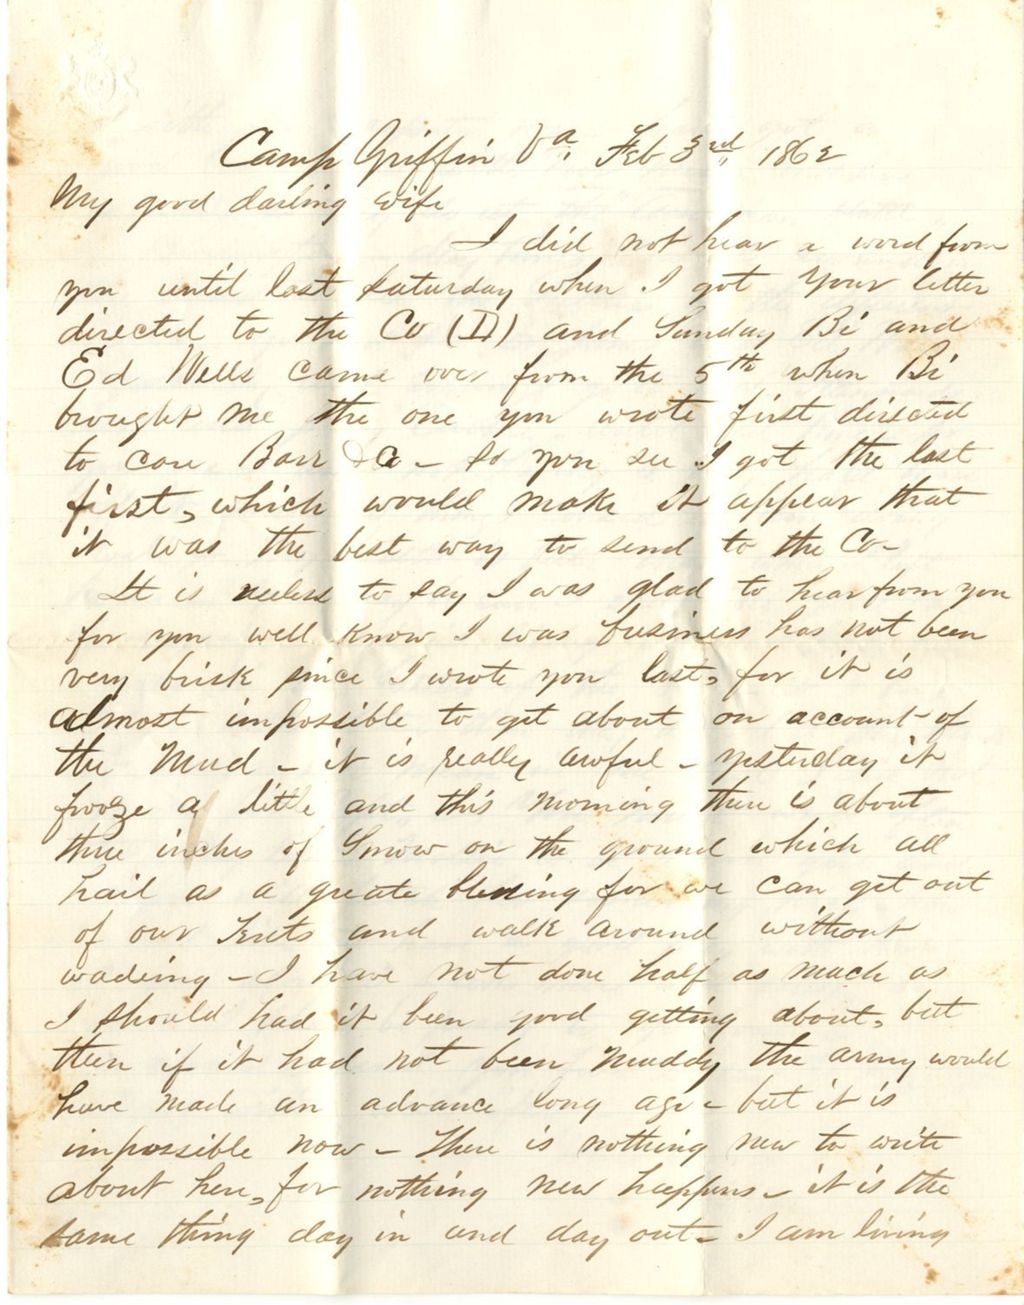 Camp Griffin Va. Feb 3rd, 1862
My good darling wife
I did not hear a word from
you until last Saturday when I got your letter
directed to the Co (I) and Sunday Bi and
Ed Wells came over from the 5th when Bi
brought me the one you wrote first directed
to care Barr & Co - So you see I got the last
first, which would make it appear that
it was the best way to send to the Co-
It is useless to say I was glad to hear from you
for you well know I was business has not been
very brisk since I wrote you last, for it is
almost impossible to get about on account of
the Mud - it is really awful - yesterday it
frooze a little and this morning there is about
three inches of Snow on the ground which all
hail as a greate blessing for we can get out
of our Tents and walk around without
wadeing - I have not done half as much as
I should had it been good getting about, but
then if it had not been muddy the army would
have made an advance long ago - but it is
impossible now - There is nothing new to write
about here, for nothing new happens - it is the
same thing day in and day out - I am living